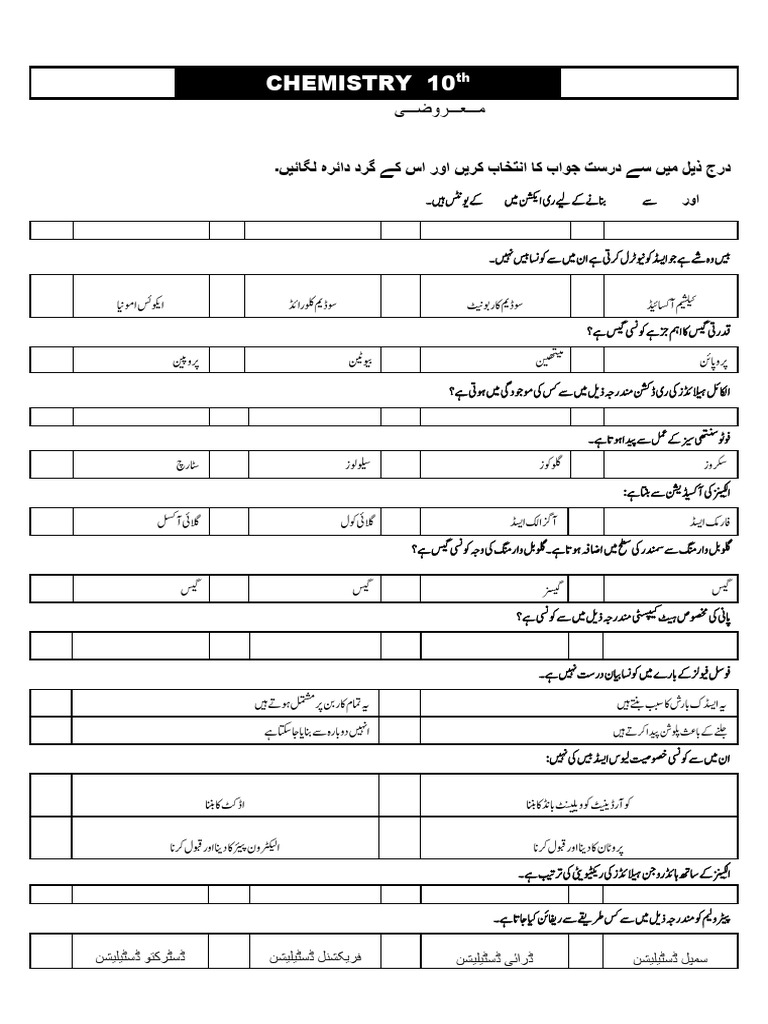 CHEMISTRY 10th
معروضی
درج ذیل میں سے درست جواب کا انتخاب کریں اور اس کے گرد دائرہ لگائیں۔
اور سے بنانے کے لیے ری ایکشن میں کے یونٹس ہیں۔
بیس وہ شے ہے جو ایسڈ کو نیوٹرل کرتی ہے ان میں سے کونسا بیس نہیں۔
کیلشیم آکسائیڈ سوڈیم کاربونیٹ سوڈیم کلورائڈ ایکوئس امونیا
قدرتی گیس کا اہم جز ہے کونسی گیس ہے؟
پروپائن میتھین بیوٹین پروپین
الکائل ہیلائڈز کی ری ڈکشن مندرجہ ذیل میں سے کس کی موجودگی میں ہوتی ہے؟
فوٹو سنتھی سیز کے عمل سے پیدا ہوتا ہے۔
سکروز گلوکوز سیلولوز سٹارچ
الکینز کی آکسیڈیشن سے بنتا ہے:
فارمک ایسڈ آگزالک ایسڈ گلائی کول گلائی آکسل
گلوبل وارمنگ سے سمندر کی سطح میں اضافہ ہوتا ہے۔ گلوبل وارمنگ کی وجہ کونسی گیس ہے؟
گیس گیسز گیس گیس
پانی کی مخصوص ہیٹ کیپسٹی مندرجہ ذیل میں سے کونسی ہے؟
فوسل فیولز کے بارے میں کونسا بیان درست نہیں ہے۔
یہ ایسڈک بارش کا سبب بنتے ہیں یہ تمام کاربن پر مشتمل ہوتے ہیں
جلنے کے باعث پلوشن پیدا کرتے ہیں انہیں دوبارہ سے بنایا جا سکتا ہے
ان میں سے کونسی خصوصیت لیوس ایسڈ بیس کی نہیں:
کوآرڈینیٹ کوویلینٹ بانڈ کا بننا اڈکٹ کا بننا
پروٹان کا دینا اور قبول کرنا الیکٹرون پیئر کا دینا اور قبول کرنا
الکینز کے ساتھ ہائڈروجن ہیلائڈز کی ریکٹیویٹی کی ترتیب ہے۔
پیٹرولیم کو مندرجہ ذیل میں سے کس طریقے سے ریفائن کیا جاتا ہے۔
سمپل ڈسٹیلیشن ڈرائی ڈسٹیلیشن فریکشنل ڈسٹیلیشن ڈسٹرکٹو ڈسٹیلیشن